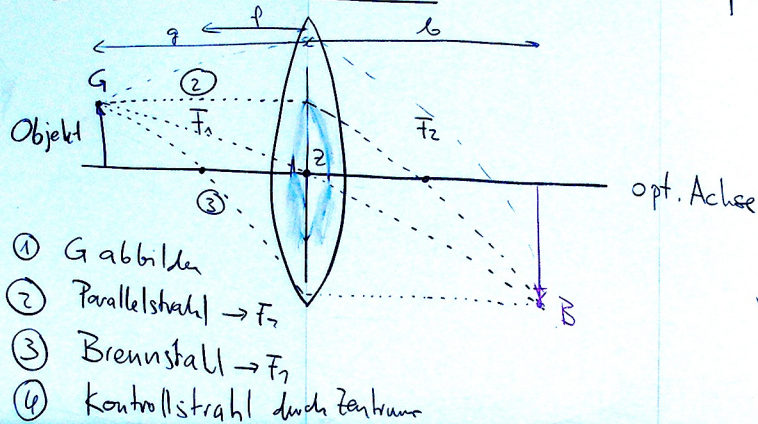 g f b
G
②
F₁
F₂
Objekt
Z
③
opt. Achse
B
① G abbilden
② Parallelstrahl → F₂
③ Brennstall → F₁
④ Kontrollstrahl durch Zentrum